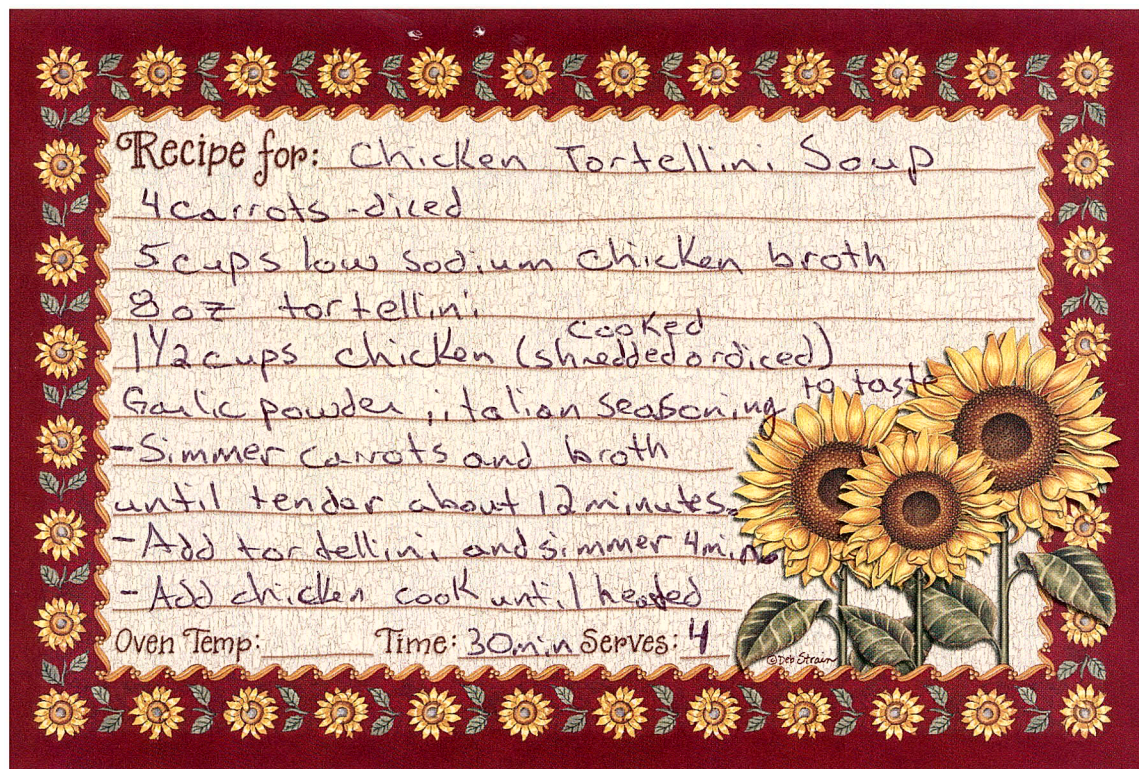 Recipe for: Chicken Tortellini Soup
4 carrots - diced
5 cups low sodium chicken broth
8 oz tortellini
cooked
1 1/2 cups chicken (shredded or diced)
to taste
Garlic powder, italian seasoning
- Simmer carrots and broth
until tender about 12 minutes.
- Add tortellini and simmer 4 min
- Add chicken cook until heated
Oven Temp: Time: 30 min Serves: 4
©Deb Strain